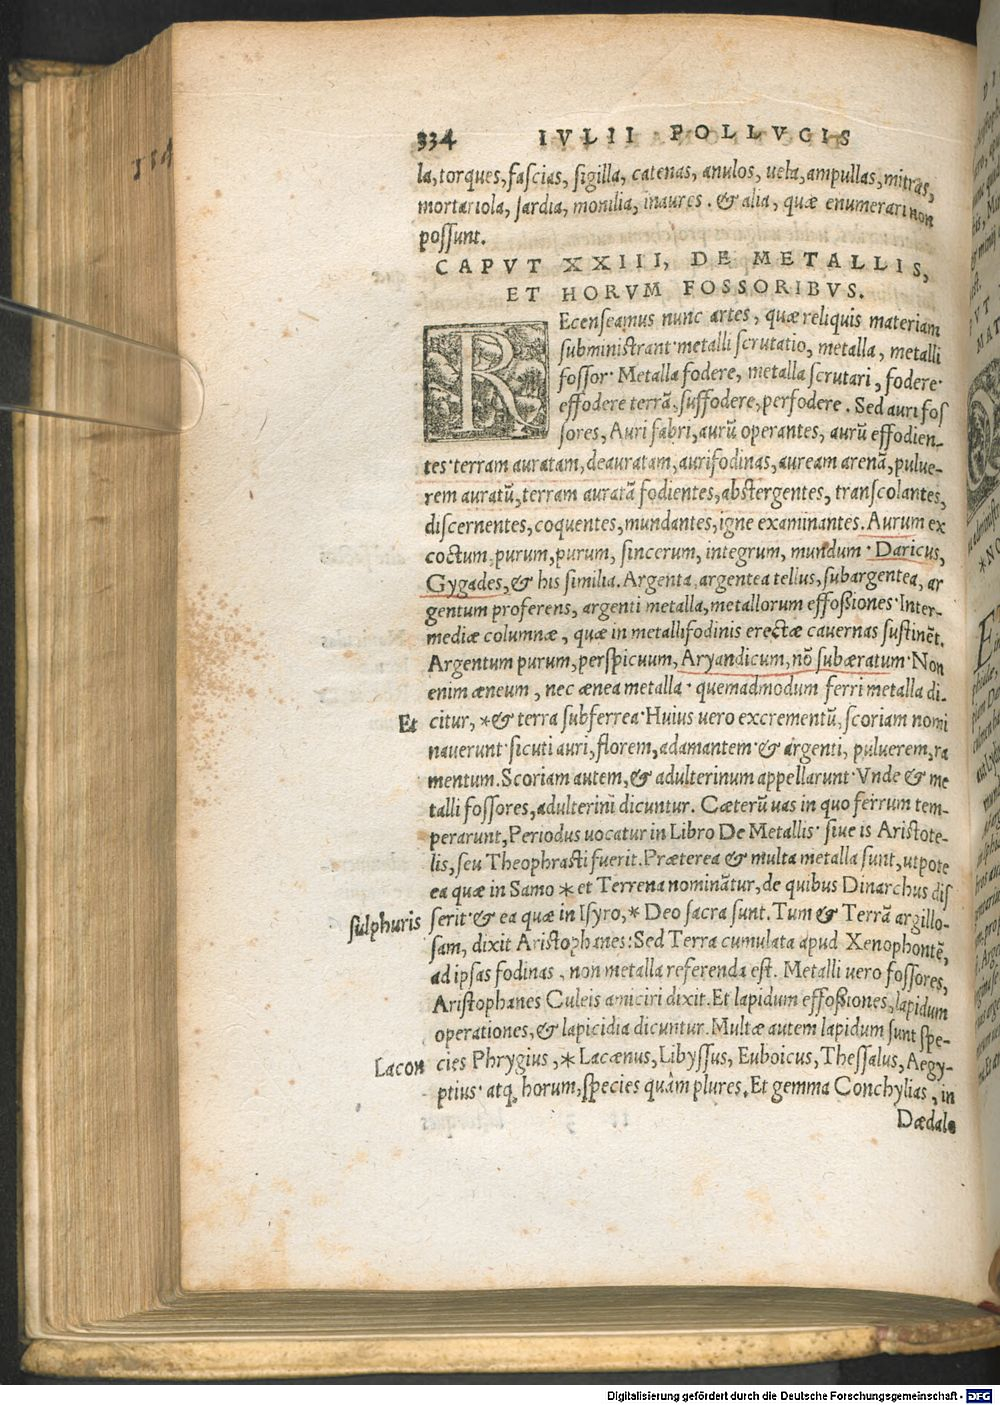 334 IVLII POLLVCIS
la, torques, fascias, sigilla, catenas, anulos, uela, ampullas, mitras,
mortariola, jardia, monilia, inaures. & alia, quæ enumerari non
possunt.
CAPVT XXIII, DE METALLIS,
ET HORVM FOSSORIBVS.
REcenseamus nunc artes, quæ reliquis materiam
subministrant· metalli scrutatio, metalla, metalli
fossor· Metalla fodere, metalla scrutari, fodere·
effodere terrã, suffodere, perfodere. Sed auri fos
sores, Auri fabri, aurũ operantes, aurũ effodien-
tes· terram auratam, deauratam, aurifodinas, auream arenã, pulue-
rem auratũ, terram auratã fodientes, abstergentes, transcolantes,
discernentes, coquentes, mundantes, igne examinantes. Aurum ex
coctum, purum, purum, sincerum, integrum, mundum· Daricus,
Gygades, & his similia. Argenta, argentea tellus, subargentea, ar
gentum proferens, argenti metalla, metallorum effossiones· Inter-
mediæ columnæ, quæ in metallifodinis erectæ cauernas sustinẽt.
Argentum purum, perspicuum, Aryandicum, nõ subæratum· Non
enim æneum, nec ænea metalla· quemadmodum ferri metalla di-
Et citur, *& terra subferrea· Huius uero excrementũ, scoriam nomi
nauerunt· sicuti auri, florem, adamantem· & argenti, puluerem, ra
mentum. Scoriam autem, & adulterinum appellarunt· Vnde & me
talli fossores, adulterini dicuntur. Cæterũ uas in quo ferrum tem-
perarunt, Periodus uocatur in Libro De Metallis· siue is Aristote-
lis, seu Theophrasti fuerit. Præterea & multa metalla sunt, utpote
ea quæ in Samo * et Terrena nominãtur, de quibus Dinarchus dis
sulphuris serit· & ea quæ in Isyro, * Deo sacra sunt. Tum & Terrã argillo-
sam, dixit Aristophanes: Sed Terra cumulata apud Xenophontẽ,
ad ipsas fodinas, non metalla referenda est. Metalli uero fossores,
Aristophanes Culeis amiciri dixit. Et lapidum effossiones, lapidum
operationes, & lapicidia dicuntur. Multæ autem lapidum sunt spe-
Lacon cies Phrygius, * Lacænus, Libyssus, Euboicus, Thessalus, Aegy-
ptius· atq; horum, species quàm plures. Et gemma Conchylias, in
Dædalo
Digitalisierung gefördert durch die Deutsche Forschungsgemeinschaft - DFG